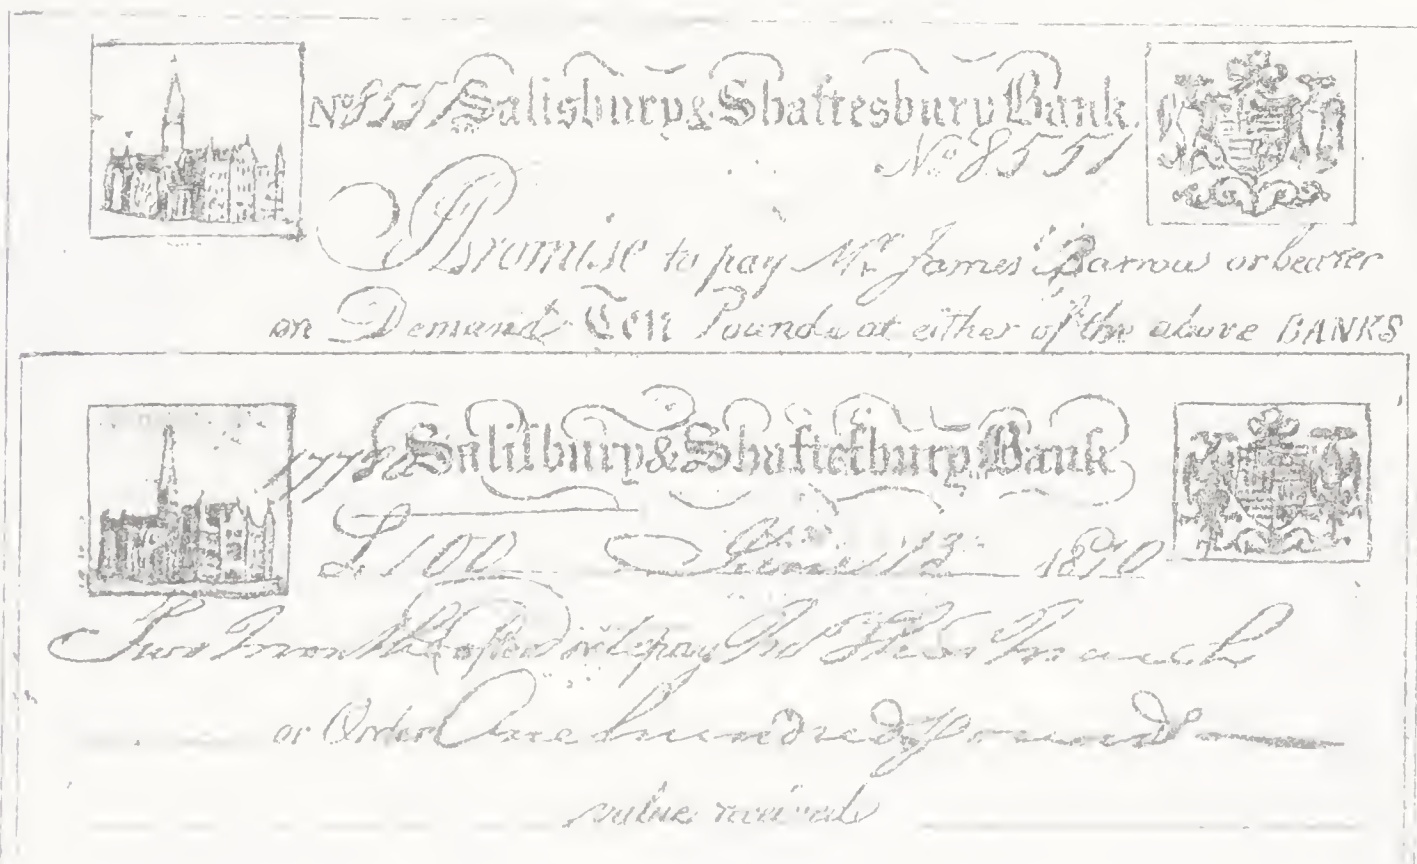 No 8551 Salisbury & Shaftesbury Bank.
No 8551
I Promise to pay Mr. James Barrow or bearer
on Demand Ten Pounds at either of the above BANKS
1778 Saliſbury & Shafteſbury Bank
£100 June 12 1810
Two Months after Date pay
or Order One hundred pounds
value received